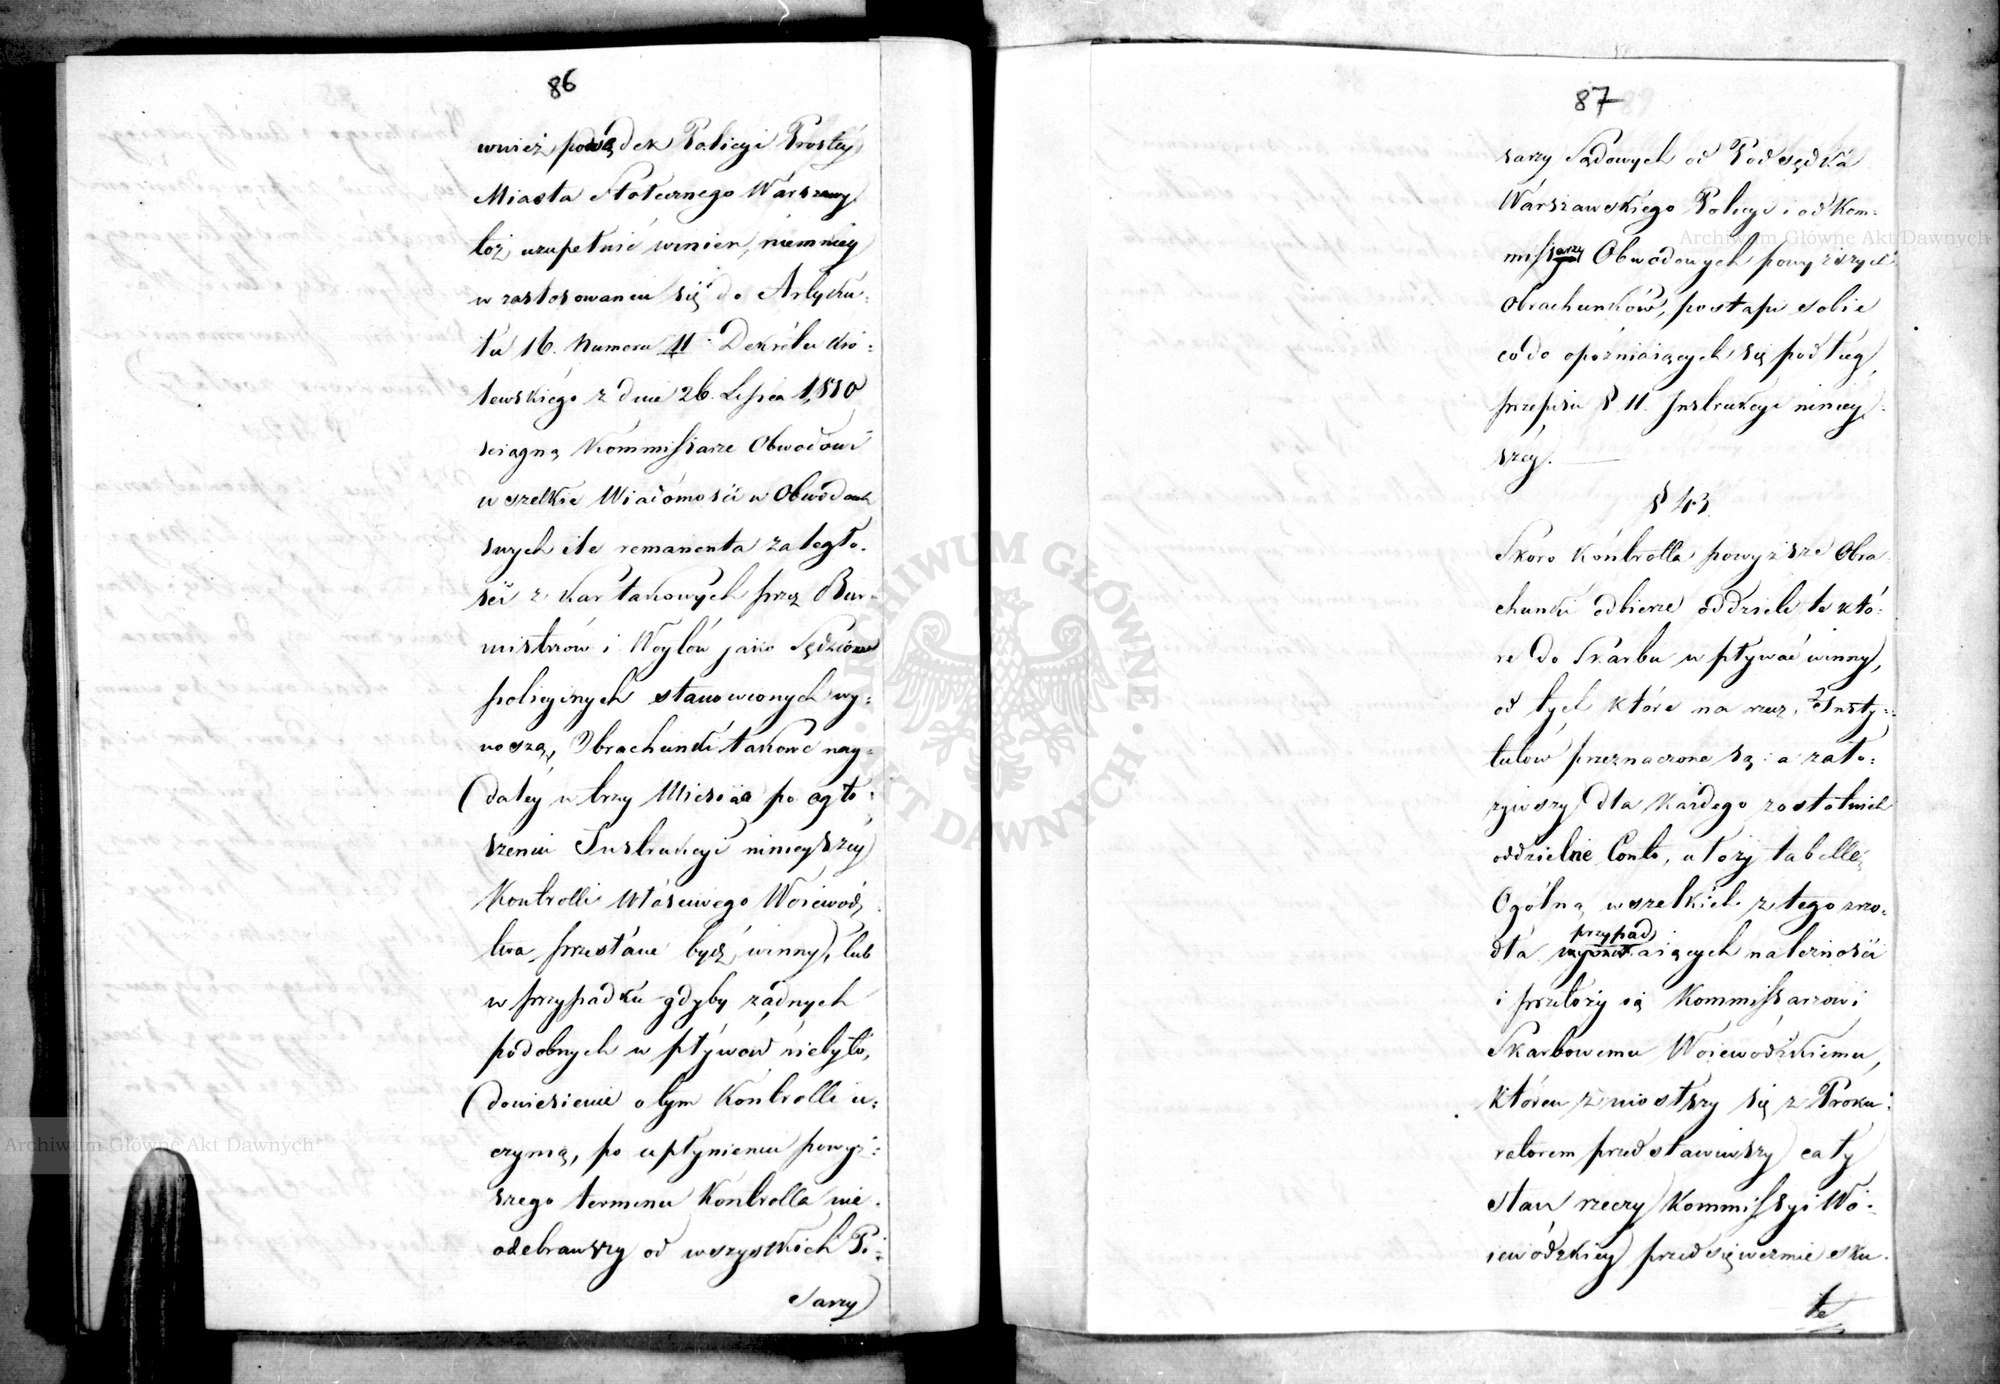 86
wnież podsędek Policyi Prostéy
Miasta Stołecznego Warszawy
toż uzupełnić winien, niemniéy
w zastosowaniu się do Artyku=
łu 16. Numeru 11. Dekrétu Kró=
lewskiégo z dnia 26. Lipca 1,810
sciągną Kommissarze Obwodowi
wszelkie Wiadómości w Obwodach
swych ile remanenta zaległo=
ści z kar takowych przez Bur=
mistrzów i Woytów jako Sędziów
policyinych stanowionych wy=
noszą, Obrachunki takowe nay=
daléy w trzy Miesiące po ogło=
szeniu Instrukcyi ninieyszéy
Kontrolli właściwego Woiewódz
twa przesłane bydź winny, lub
w przypadku gdyby żadnych
podobnych wpływów niebyło,
doniesienie o tym Kontrolli u=
czynią, po upłynieniu powyż=
szego terminu Kontrolla nie=
odebrawszy od wszystkich Pi=
sarzy
87
sarzy Sądowych od Podsędka
Warszawskiégo Policyi i od Kom=
missarzy Obwodowych powyższych
Obrachunków, postąpi sobie
co do opóźniaiących się podług
przepisu § 11. Instrukcyi niniey=
széy.
§ 43
Skoro Kóntrolla powyższe Obra
chunki odbierze oddzieli te któ=
re do Skarbu wpływać winny,
od tych które na rzecz Insty=
tutów przeznaczone są: a zało=
żywszy dla każdego z ostatnich
oddzielne Conto, ułoży tabellę
Ogólną wszelkich z tego źrzo=
dła przypadaiących należności
i przełoży ią Kommissarzowi
Skarbowemu Woiewódzkiemu,
któren zniósłszy się z Proku=
ratorem przedstawiwszy cały
stan rzeczy Kommissyi Wo=
iewódzkiey przedsięweźmie sku=
te
Archiwum Główne Akt Dawnych
Archiwum Główne Akt Dawnych
ARCHIWUM GŁÓWNE AKT DAWNYCH